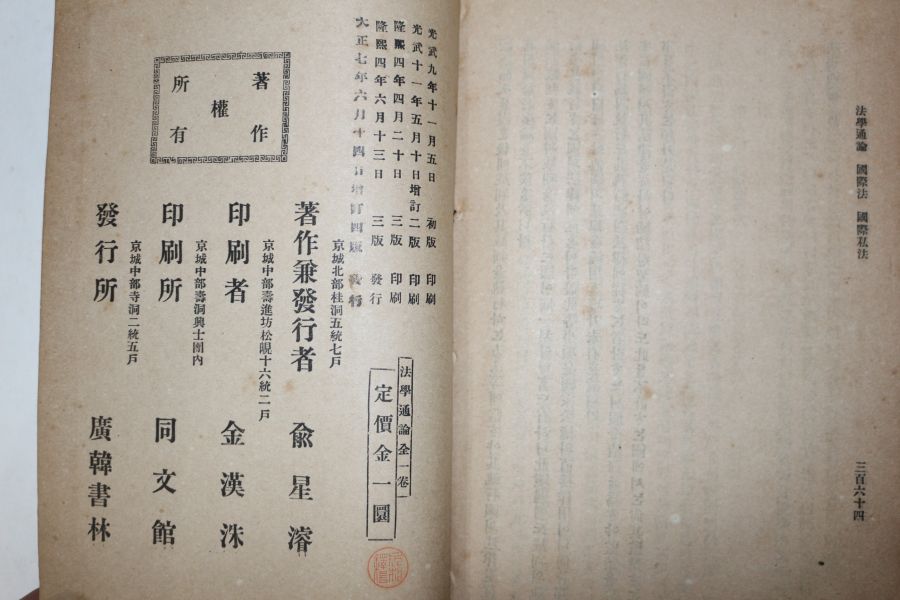 法學通論 國際法 國際私法
三百六十四
光武九年十一月五日 初版 印刷
光武十一年五月十日增訂二版 印刷
隆熙四年四月二十日 三版 印刷
隆熙四年六月十三日 三版 發行
大正七年六月十四日增訂四版 發行
法學通論全一卷
定價金一圜
著作權所有
京城北部桂洞五統七戶
著作兼發行者 兪星濬
京城中部壽進坊松峴十六統二戶
印刷者 金漢洙
京城中部壽洞興士團內
印刷所 同文館
京城中部寺洞二統五戶
發行所 廣韓書林